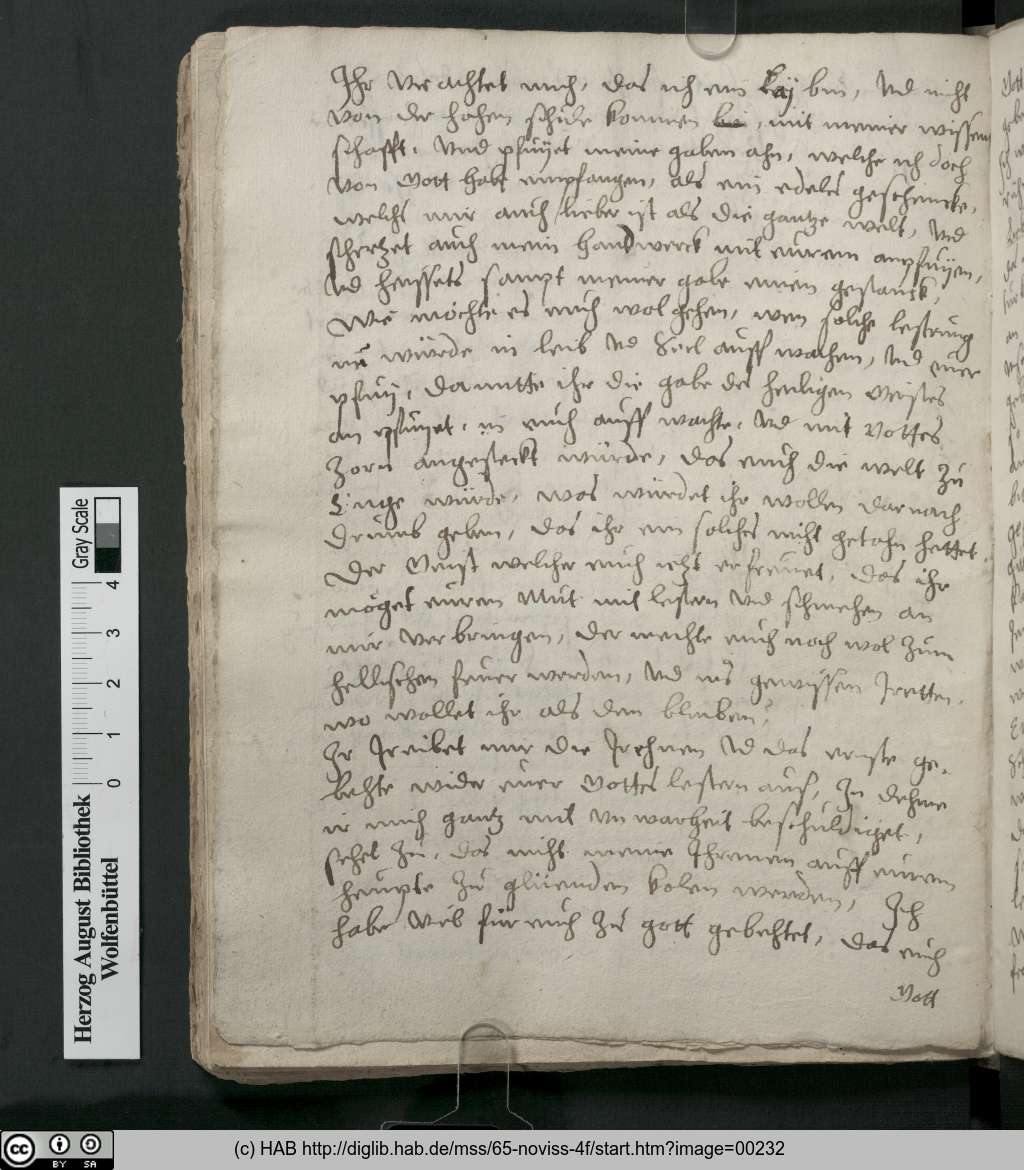 Ihr verachtet mich, das ich ein Laÿ bin, vnd nicht
von der hohen schule kommen bin, mit meiner wissen
schafft, vnnd pfuÿet meine gaben ahn, welche ich doch
von Gott habe empfangen, als ein edeles geschencke,
welchs mir auch lieber ist als die gantze welt, vnd
schertzet auch mein handwerck mit eurem anpfuÿen,
vnd heissets sampt meiner gabe einen gestanck,
Wie möchte es euch wol gehen, wen solche lesterung
würde in leib vnd Seel auffwachen, vnd euer
pfuÿ, damitte ihr die gabe des heiligen Geistes
an pfuÿet, in euch auff wachte, vnd mit Gottes
Zorn angesteckt würde, das euch die welt zu
Enge würde, was würdet ihr wollen darnach
drumb geben, das ihr ein solches nicht getahn hettet
Der Geist welcher euch itzt erfreuet, das ihr
möget euren Mut mit lestern vnd schmehen an
mir verbringen, der mechte euch noch wol zum
hellischen feuer werden, vnd ins gewissen tretten,
wo wollet ihr als den bleiben,
Ir treibet mir die trehnen vnd das ernste ge-
behte wider euer Gottes lestern aus, In dehme
ir mich gantz mit vnwarheit beschuldiget,
sehet zu, das nicht meine Threnen auff eurem
heupte zu glüenden kolen werden, Ich
habe vieb für euch zu gott gebehtet, das euch
Gott
Gray Scale
4
3
2
1
0
Herzog August Bibliothek
Wolfenbüttel
cc BY SA
(c) HAB http://diglib.hab.de/mss/65-noviss-4f/start.htm?image=00232